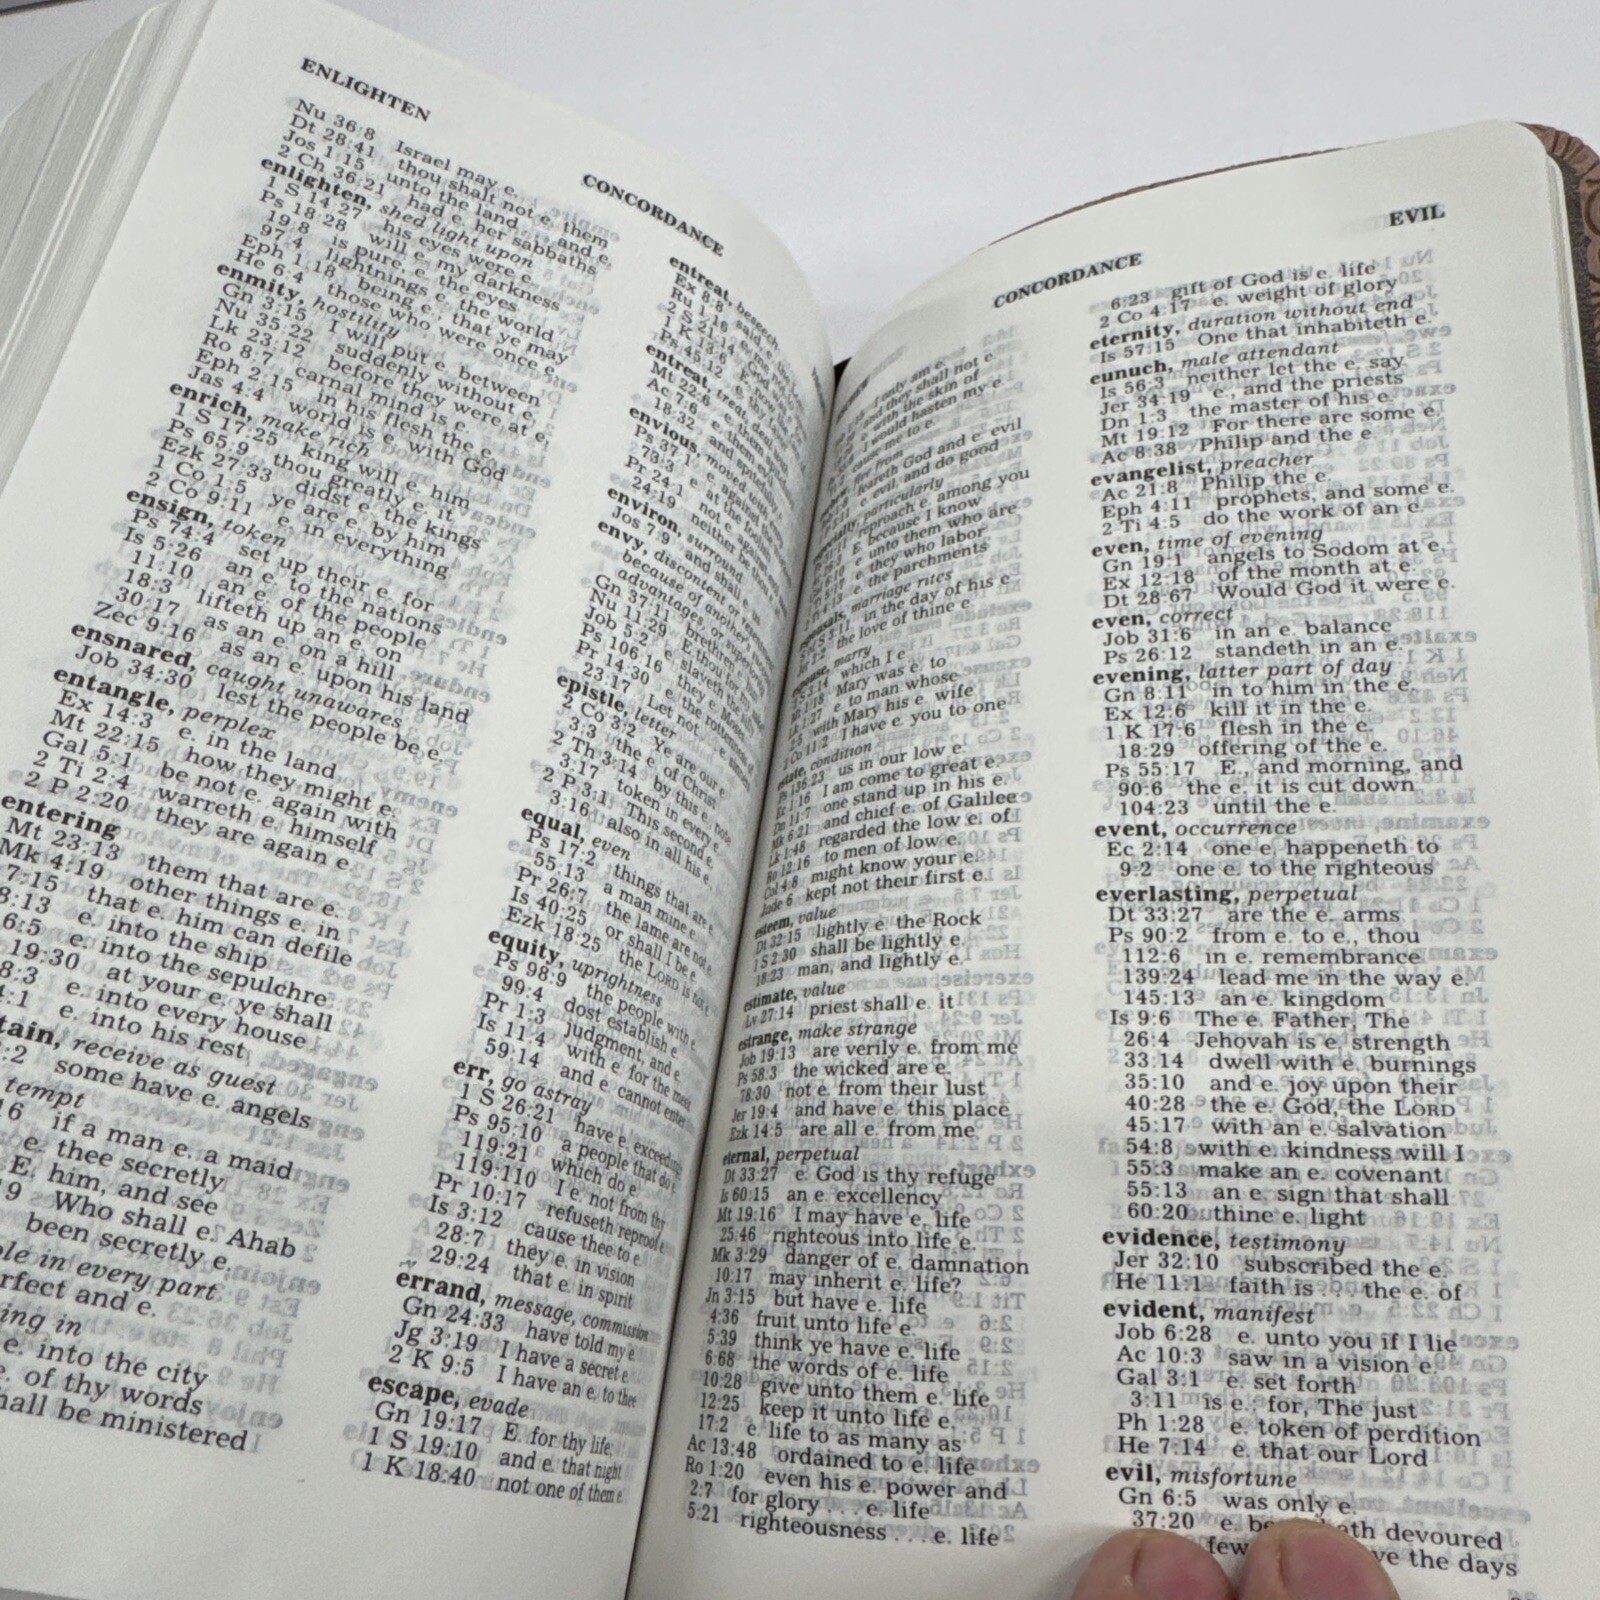 ENLIGHTEN
CONCORDANCE
Nu 36:8 Israel may e.
Dt 28:41 thou shalt not e. them
Jos 1:15 unto the land and e.
2 Ch 36:21 had e. her sabbaths
enlighten, shed light upon
1 S 14:27 his eyes were e.
Ps 18:28 will e. my darkness
19:8 is pure, e. the eyes
97:4 lightnings e. the world
Eph 1:18 being e., that ye may
He 6:4 those who were once e.
enmity, hostility
Gn 3:15 I will put e. between
Nu 35:22 suddenly without e.
Lk 23:12 before they were at e.
Ro 8:7 carnal mind is e.
Eph 2:15 in his flesh the e.
Jas 4:4 world is e. with God
enrich, make rich
1 S 17:25 king will e. him
Ps 65:9 thou greatly e. it
Ezk 27:33 didst e. the kings
1 Co 1:5 ye are e. by him
2 Co 9:11 e. in everything
ensign, token
Ps 74:4 set up their e. for
Is 5:26 an e. to the nations
11:10 an e. of the people
18:3 lifteth up an e. on
30:17 as an e. on a hill
Zec 9:16 as an e. upon his land
ensnared, caught unawares
Job 34:30 lest the people be e.
entangle, perplex
Ex 14:3 e. in the land
Mt 22:15 how they might e.
Gal 5:1 be not e. again with
2 Ti 2:4 warreth e. himself
2 P 2:20 they are again e.
entering
Mt 23:13 them that are e.
Mk 4:19 other things e. in
7:15 that e. him can defile
8:13 e. into the ship
6:5 e. into the sepulchre
19:30 at your e. ye shall
8:3 e. into every house
4:1 e. into his rest
tain, receive as guest
:2 some have e. angels
tempt
16 if a man e. a maid
e. thee secretly
E. him, and see
9 Who shall e. Ahab
been secretly e.
ble in every part
rfect and e.
ing in
e. into the city
e. of thy words
hall be ministered
entreat, beseech
Ex 8:8
Ru 1:16 said, e.
2 S 21:14
1 K 13:6
Ps 45:12
entreat, treat, deal with
Mt 22:6 e. them
Ac 7:6 e. them evil
18:32 and spitefully
envious, moved with
Ps 37:1 e. against
73:3 e. at the foolish
Pr 24:1 not e. against
24:19 neither be
environ, surround
Jos 7:9 and shall e.
envy, discontent or
because of another's
advantages, or
Gn 37:11 brethren
Nu 11:29 E. thou for
Job 5:2 e. slayeth the
Ps 106:16 they e. Moses
Pr 14:30 e. the rottenness of
23:17 Let not
epistle, letter
2 Co 3:2 Ye are our e.
3:3 the e. of Christ
2 Th 3:14 by this e. note
3:17 token in every e.
2 P 3:1 This second e.
3:16 also in all his e.
equal, even
Ps 17:2 things that are e.
55:13 a man mine e.
Pr 26:7 the lame are not e.
Is 40:25 or shall I be e.
Ezk 18:25 the LORD is not e.
equity, uprightness
Ps 98:9 the people with e.
99:4 dost establish e.
Pr 1:3 judgment, and e.
Is 11:4 with e. for the meek
59:14 and e. cannot enter
err, go astray
1 S 26:21 have e. exceedingly
Ps 95:10 a people that do e.
119:21 which do e.
119:110 I e. not from thy
Pr 10:17 refuseth reproof e.
Is 3:12 cause thee to e.
28:7 they e. in vision
29:24 that e. in spirit
errand, message, commission
Gn 24:33 have told my e.
Jg 3:19 I have a secret e.
2 K 9:5 I have an e. to thee
escape, evade
Gn 19:17 E. for thy life;
1 S 19:10 and e. that night
1 K 18:40 not one of them e.
CONCORDANCE
EVIL
I only am e.
and they shall not e.
e. with the skin of
I would hasten my e.
cause me to e.
feareth God and e. evil
e. evil, and do good
especially, particularly
reproach e. among you
E. because I know
e. unto them who are
e. they who labor
e. the parchments
espousals, marriage rites
S 3:11 in the day of his e.
2:2 the love of thine e.
espouse, marry
2 S 3:14 which I e.
Mt 1:18 Mary was e. to
Lk 1:27 e. to man whose
2:5 with Mary his e. wife
2 Co 11:2 I have e. you to one
estate, condition
Ps 136:23 us in our low e.
Ec 1:16 I am come to great e.
Dn 11:7 one stand up in his e.
Mk 6:21 and chief e. of Galilee
Lk 1:48 regarded the low e. of
Ro 12:16 to men of low e.
Col 4:8 might know your e.
Jude 6 kept not their first e.
esteem, value
Dt 32:15 lightly e. the Rock
1 S 2:30 shall be lightly e.
18:23 man, and lightly e.
estimate, value
Lv 27:14 priest shall e. it
estrange, make strange
Job 19:13 are verily e. from me
Ps 58:3 the wicked are e.
78:30 not e. from their lust
Jer 19:4 and have e. this place
Ezk 14:5 are all e. from me
eternal, perpetual
Dt 33:27 e. God is thy refuge
Is 60:15 an e. excellency
Mt 19:16 I may have e. life
25:46 righteous into life e.
Mk 3:29 danger of e. damnation
10:17 may inherit e. life?
Jn 3:15 but have e. life
4:36 fruit unto life e.
5:39 think ye have e. life
6:68 the words of e. life
10:28 give unto them e. life
12:25 keep it unto life e.
17:2 e. life to as many as
Ac 13:48 ordained to e. life
Ro 1:20 even his e. power and
2:7 for glory . . . e. life
5:21 righteousness . . . e. life
6:23 gift of God is e. life
2 Co 4:17 e. weight of glory
eternity, duration without end
Is 57:15 One that inhabiteth e.
eunuch, male attendant
Is 56:3 neither let the e. say
Jer 34:19 e., and the priests
Dn 1:3 the master of his e.
Mt 19:12 For there are some e.
Ac 8:38 Philip and the e.
evangelist, preacher
Ac 21:8 Philip the e.
Eph 4:11 prophets, and some e.
2 Ti 4:5 do the work of an e.
even, time of evening
Gn 19:1 angels to Sodom at e.
Ex 12:18 of the month at e.
Dt 28:67 Would God it were e.
even, correct
Job 31:6 in an e. balance
Ps 26:12 standeth in an e.
evening, latter part of day
Gn 8:11 in to him in the e.
Ex 12:6 kill it in the e.
1 K 17:6 flesh in the e.
18:29 offering of the e.
Ps 55:17 E., and morning, and
90:6 the e. it is cut down
104:23 until the e.
event, occurrence
Ec 2:14 one e. happeneth to
9:2 one e. to the righteous
everlasting, perpetual
Dt 33:27 are the e. arms
Ps 90:2 from e. to e., thou
112:6 in e. remembrance
139:24 lead me in the way e.
145:13 an e. kingdom
Is 9:6 The e. Father, The
26:4 Jehovah is e. strength
33:14 dwell with e. burnings
35:10 and e. joy upon their
40:28 the e. God, the LORD
45:17 with an e. salvation
54:8 with e. kindness will I
55:3 make an e. covenant
55:13 an e. sign that shall
60:20 thine e. light
evidence, testimony
Jer 32:10 subscribed the e.
He 11:1 faith is . . . the e. of
evident, manifest
Job 6:28 e. unto you if I lie
Ac 10:3 saw in a vision e.
Gal 3:1 e. set forth
3:11 is e.; for, The just
Ph 1:28 e. token of perdition
He 7:14 e. that our Lord
evil, misfortune
Gn 6:5 was only e.
37:20 e. be ath devoured
few ve the days